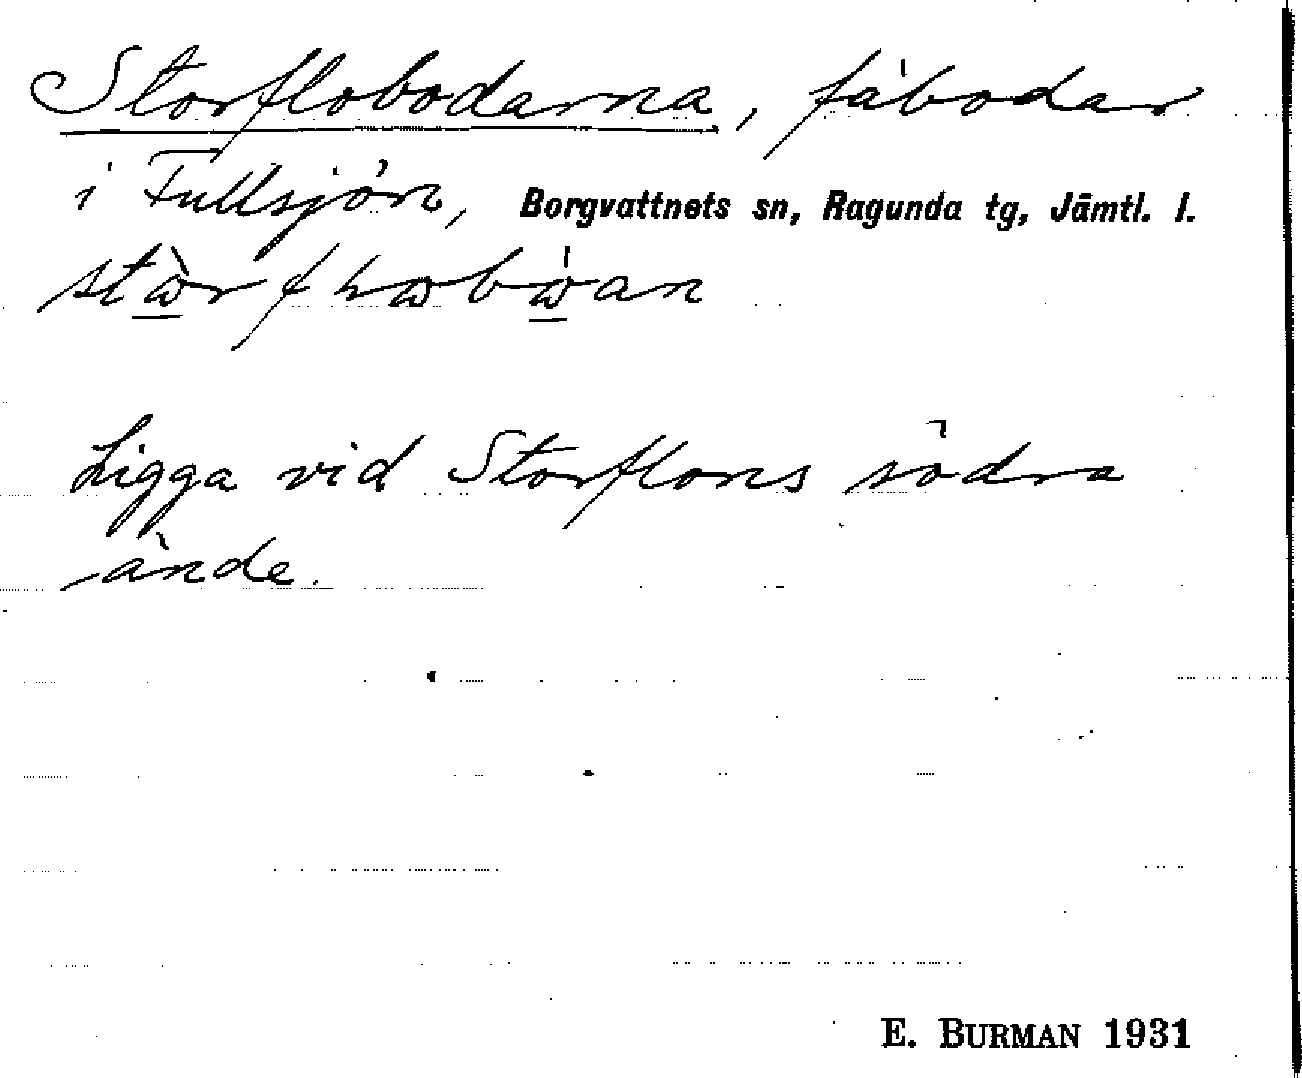 Storflobodarna, fäbodar
i Fullsjön, Borgvattnets sn, Ragunda tg, Jämtl. l.
Ligga vid Storflons södra
ände.
E. BURMAN 1931